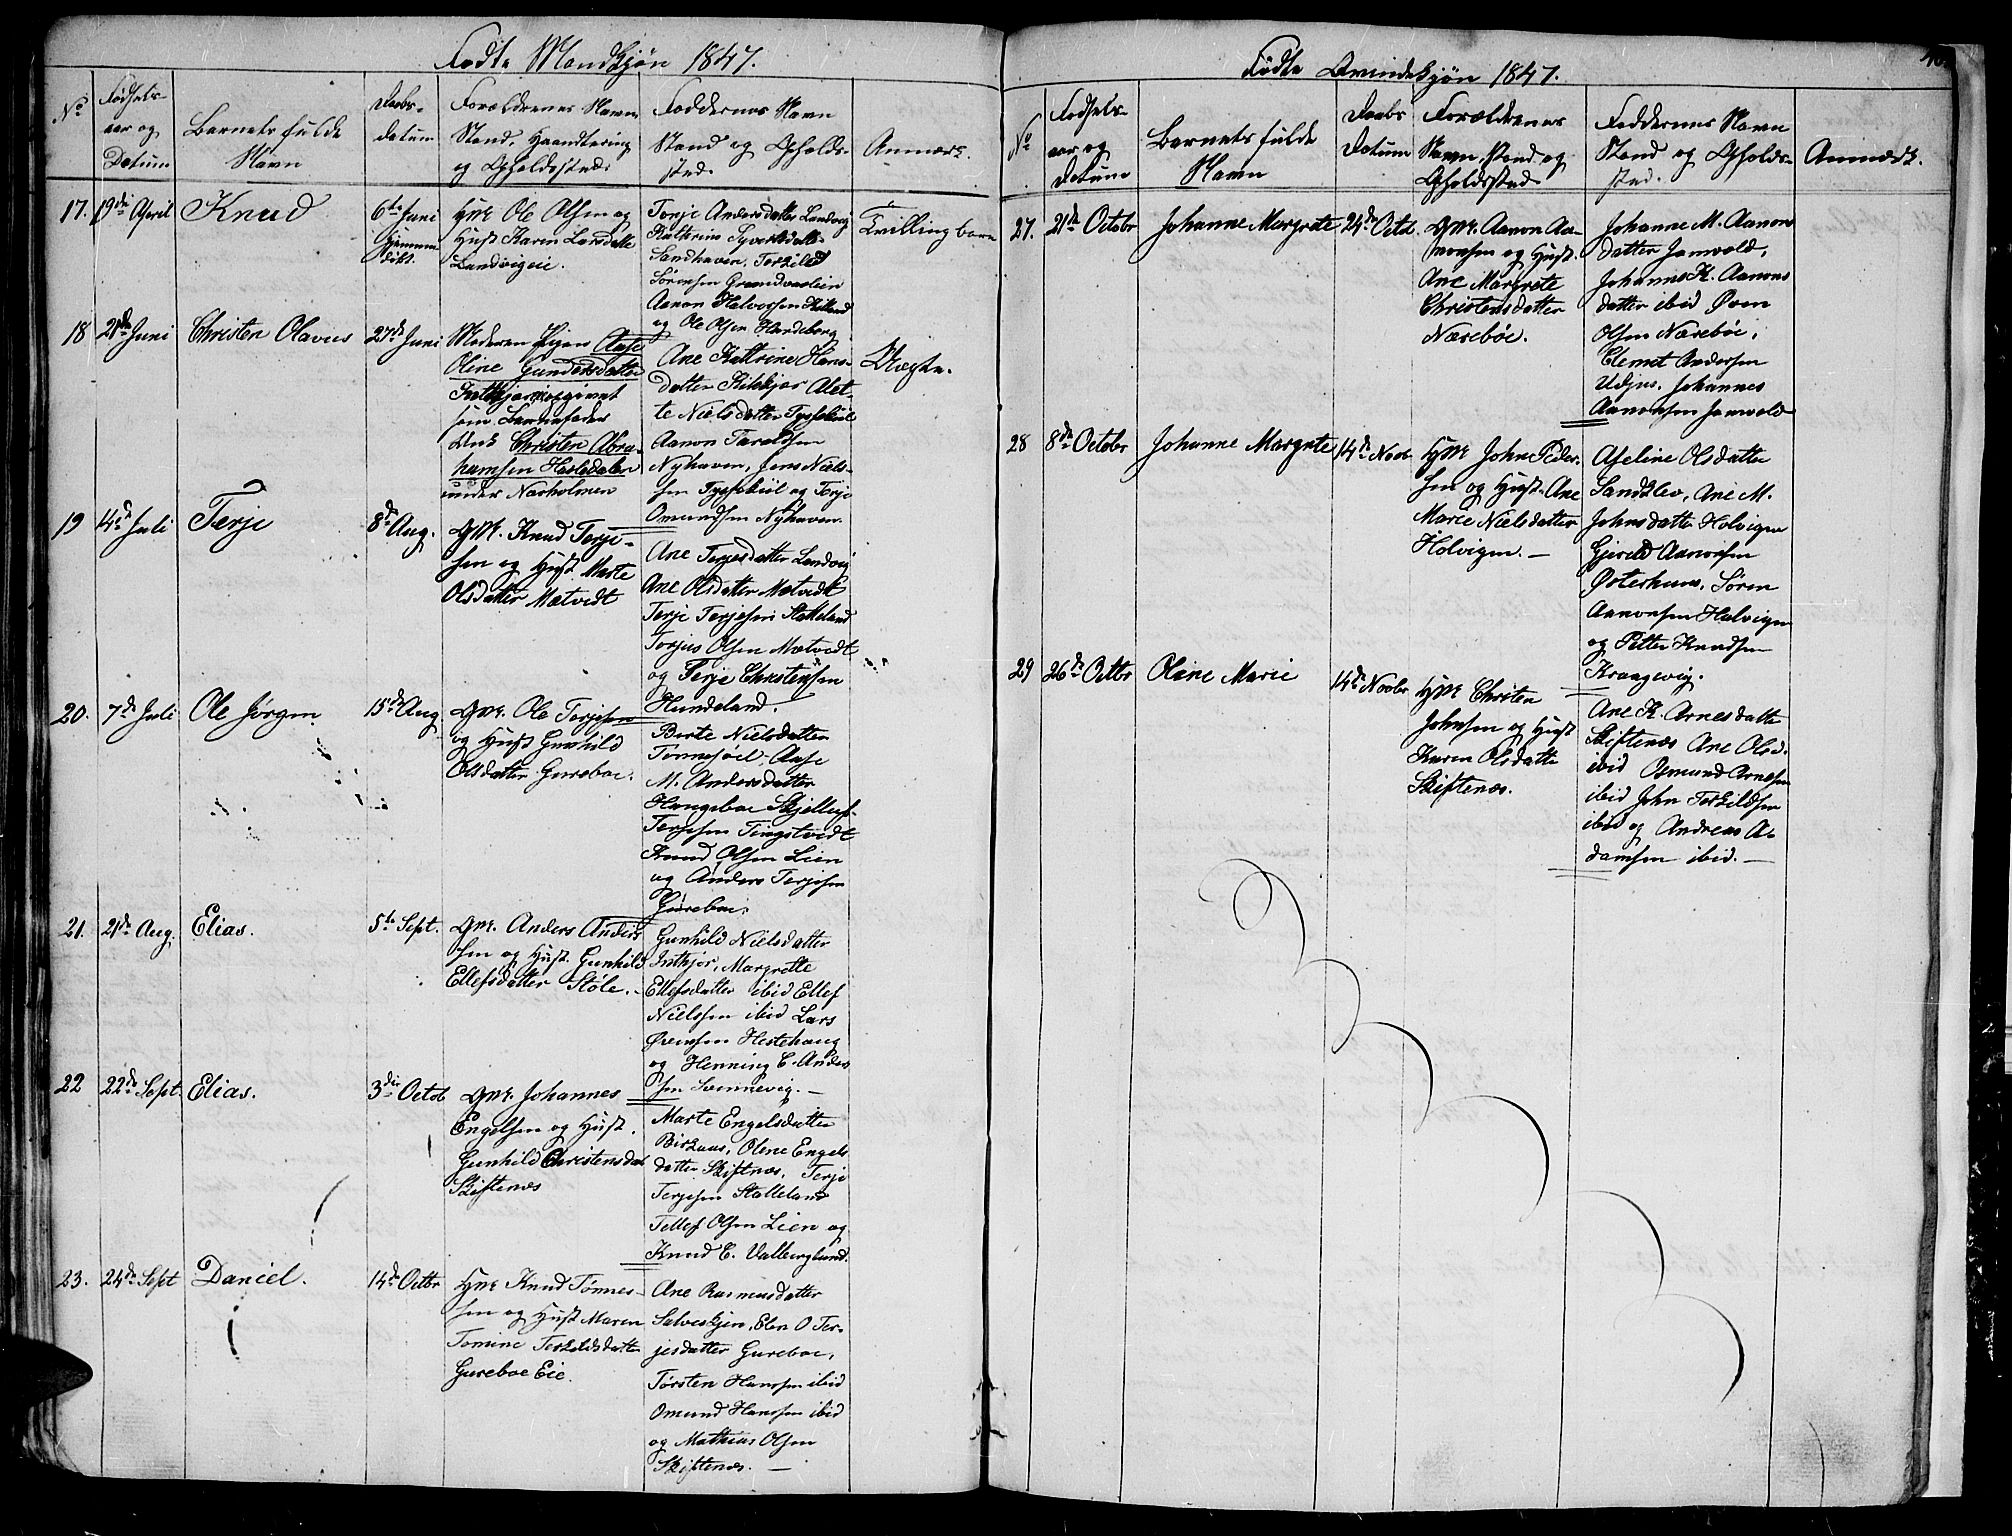 Fødte Mandkjøn 1847.
No
Fødsels-
aar og
Datum
Barnets fulde
Navn
Daabs-
datum
Forældrenes Navn
Stand, Haandtering
og Opholdssted.
Faddernes Navn
Stand og Opholds-
sted.
Anmærk.
17.
19de April
Knud
6te Juni
Hjemme
døbt.
Ole Olsen og
Hust Karen Larsdatte
Landvigeie.
Torje Andersdatter Landvig
Kathrine
Sandhaven. Terkild
Sørensen
Aanon Halvorsen
og Ole Olsen Hardeberg
Tvillingbarn
18
21de Juni
Christen Olavus
27de Juni
Moderen Pigen Aase
Oline Gundersdatter
Inthjør, opgivet
som Barnefader
Christen Abra-
hamsen Hesledalen
under Narholmen
Ane Kathrine Hans-
datter Kilekjær Alet-
te Nielsdatter
Aanon Taraldsen
Nyhaven, Jens Niels-
sen og Terje
Omundsen Nyhaven.
Uægte.
19
14de Juli
Terje
8de Aug.
Gm. Knud Terje-
sen og Hust Marte
Olsdatter Mætvedt
Ane Terjesdatter Landvig
Ane Olsdatter Mætvedt
Terje Terjesen Stalleland
Torjus Olsen Mætvedt
og Terje Christensen
Hundeland.
20.
7de Juli
Ole Jørgen
15de Aug
Gm. Ole Terjesen
og Hust Gunhild
Olsdatter Gureboe.
Berte Nielsdatter
Tønnesøel, Aase
M. Andersdatter
Haugeboe
Terjesen Tingstvedt
Knud Olsen Lien
og Anders Terjesen
Gureboe.
21.
21de Aug.
Elias.
5te Sept.
Gm. Anders Anders
sen og Hust. Gunhild
Ellefsdatter Støle.
Gunhild Nielsdatter
Inthjør, Margrethe
Ellefsdatter ibid Ellef
Nielssen ibid Lars
Hestehaug
og Henning C. Anders
sen Svennevig.
22
22de Sept.
Elias.
3die Octob
Gm. Johannes
Engelsen og Hust.
Gunhild Christensdat
Skiftenes
Marte Engelsdatter
Birkaas, Olene Engels
datter Skiftenes, Terje
Terjesen Stalleland
Tellef Olsen Lien og
Knud C. Valberglund.
23.
24de Sept
Daniel.
14de Octbr
Hm Knud Tønnes-
sen og Hust Maren
Tomine Terkildsdatte
Gureboe Eie.
Ane Rasmusdatter
Salveskjer, Elen O Ter-
jesdatter Gureboe,
Torsten Hanssen ibid
Omund Hanssen ibid
og Mathias Olsen
Skiftenes.
Fødte Qvindekjøn 1847.
No
Fødsels-
aar og
Datum
Barnets fulde
Navn
Daabs
Datum
Forældrenes
Navn, Stand og
Opholdssted
Faddernes Navn
Stand og Opholds-
sted.
Anmærk.
27.
21de Octobr
Johanne Margrete
24de Octob.
Gm. Aanon Aa-
nonsen og Hust.
Ane Margrete
Christensdatter
Næreböe.
Johanne M. Aanons
datter Jamvold,
Johanne K. Aanons
datter ibid Øven
Olsen Næreböe,
Clemet Andersen
Johannes
Aanonsen Jamvold
28
8de Octobr
Johanne Margrete
14de Novb
Hm John Peder-
sen og Hust. Ane
Marie Nielsdatter
Holvigen.
Aseline Olsdatter
Sandklev, Ane M.
Johnsdatter Holvigen
Gjeruld Aanonsen
Østerhuus, Søren
Aanonsen Holvigen
og Petter Knudsen
Kraagevig.
29
26de Octbr
Oline Marie
14de Novbr
Hm Christen
Johnsen og Hust
Karen Olsdatte
Skiftenes.
Ane K. Arnesdatte
Skiftenes Ane Olsd.
ibid Osmund Arnesen
ibid John Terkildsen
ibid og Andreas A-
damsen ibid.